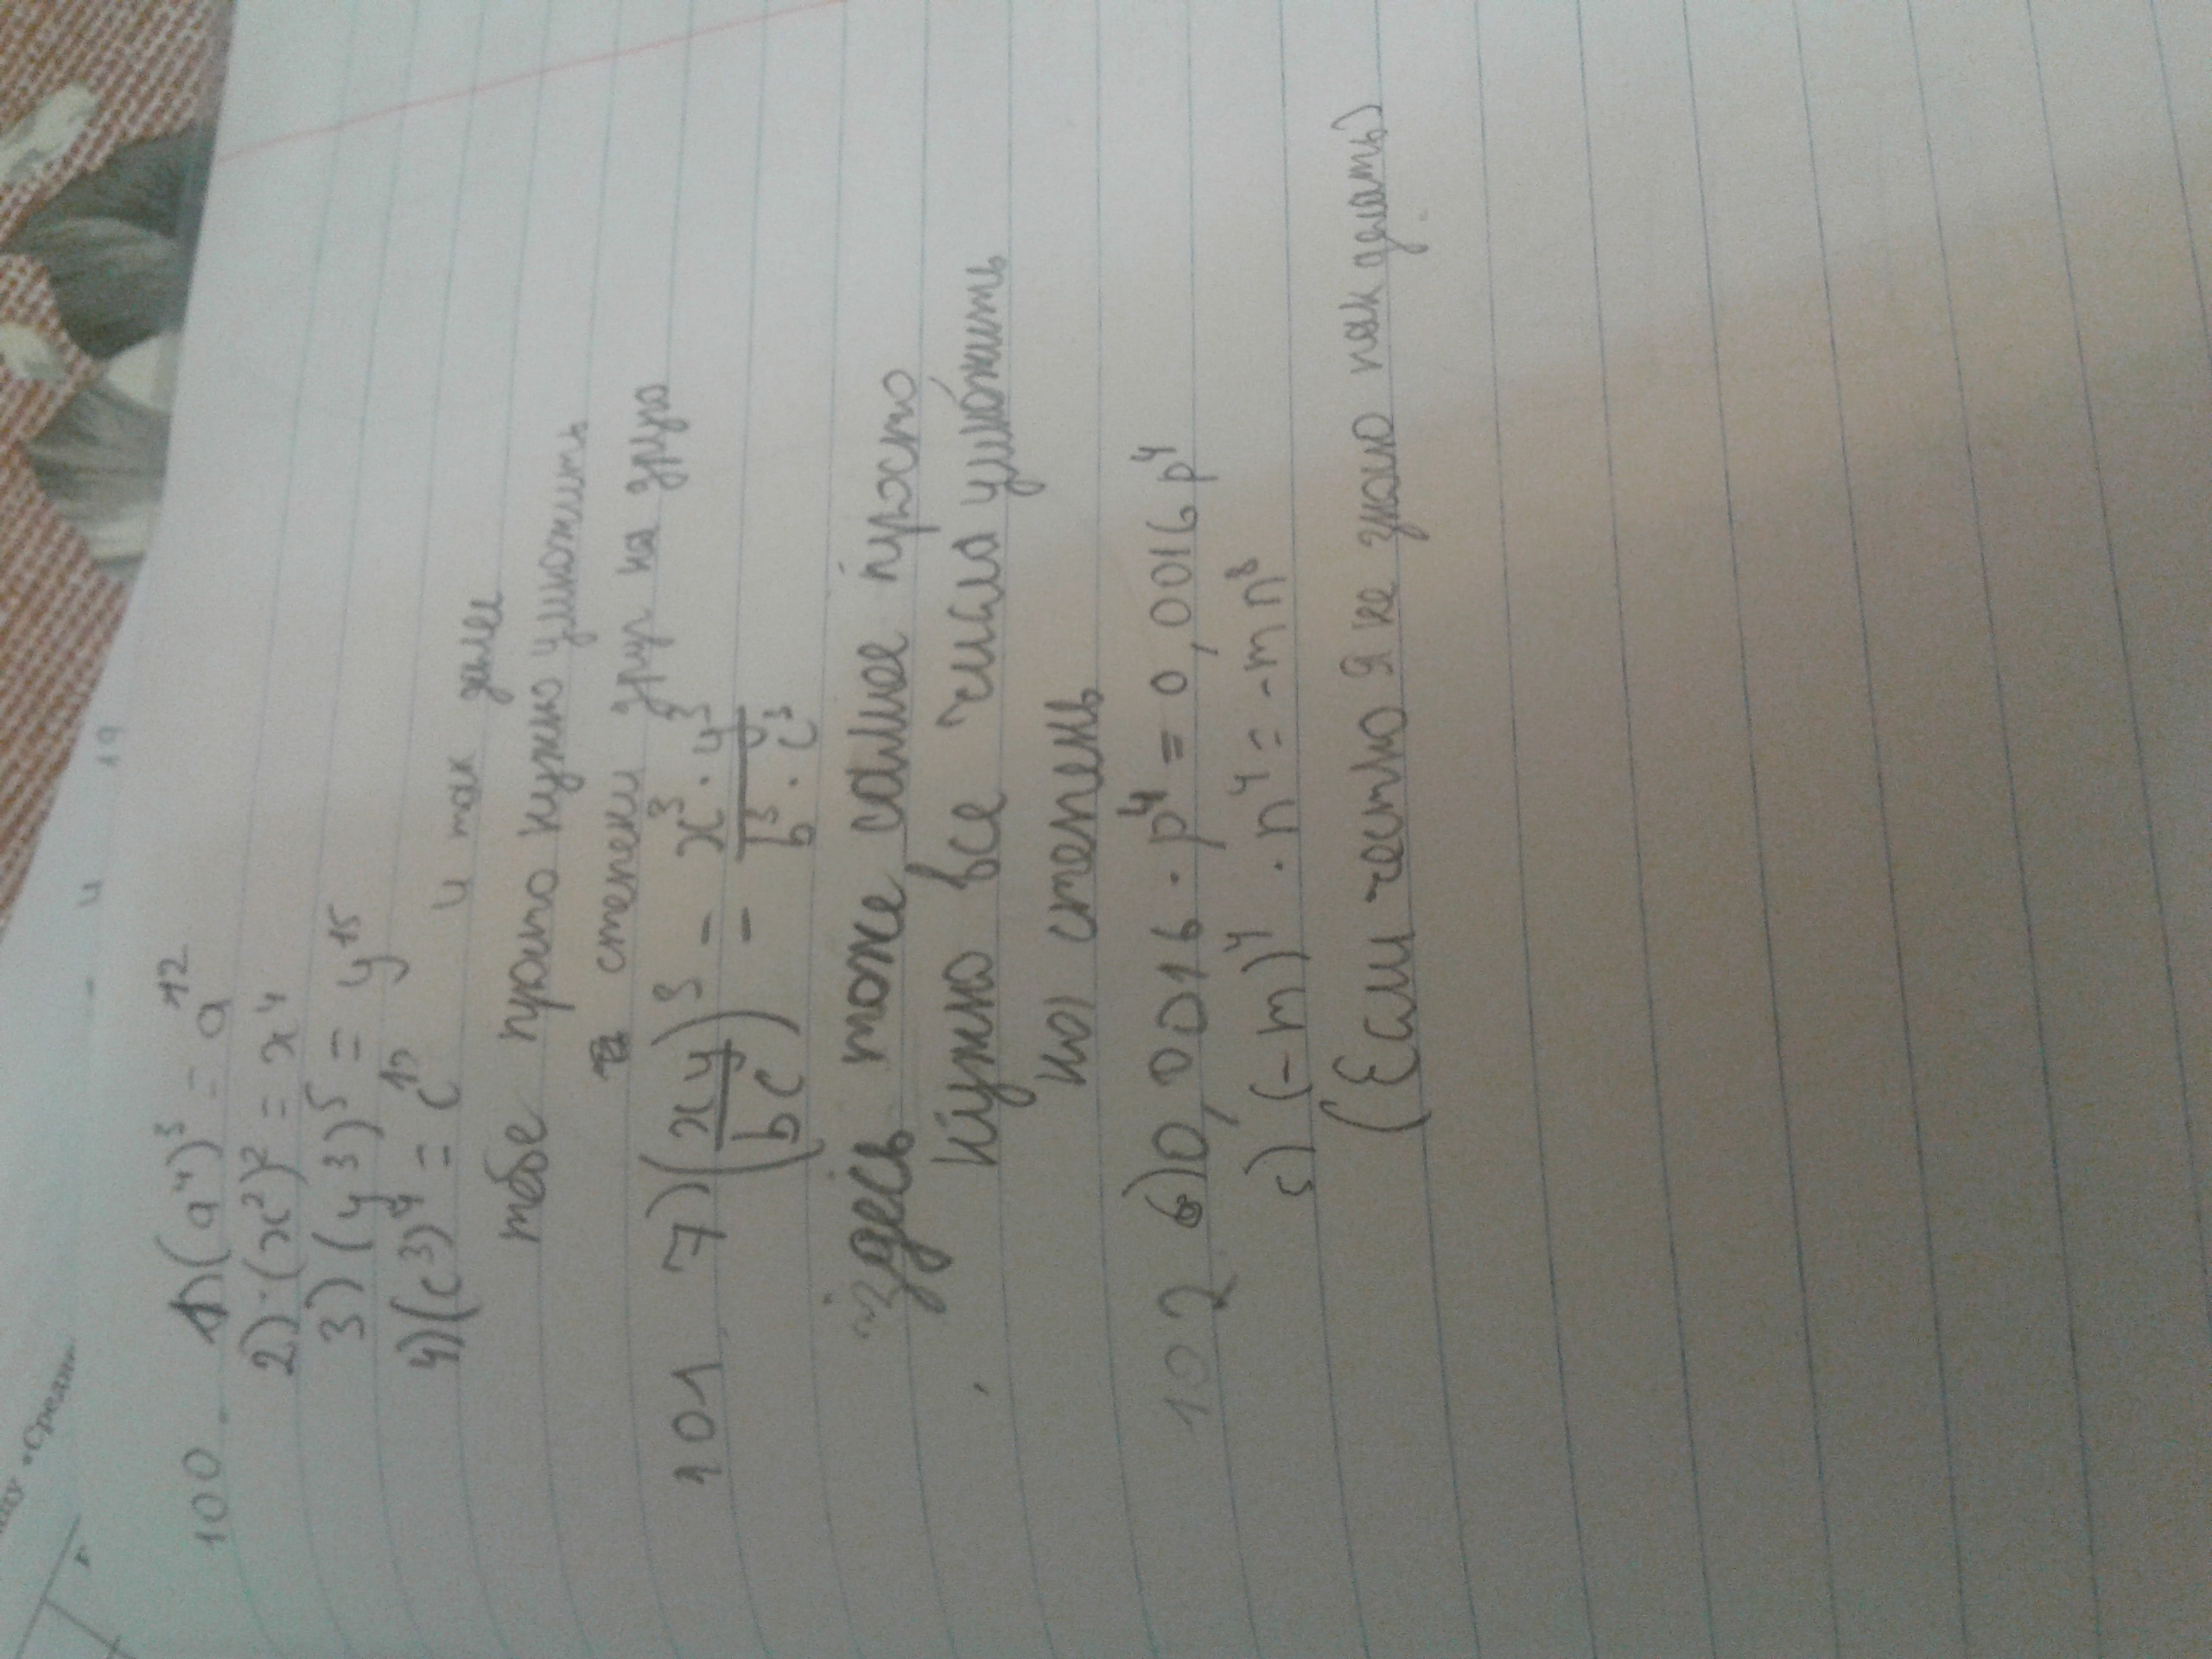 «Средн
100. 1) (a⁴)³ = a¹²
2) (x²)² = x⁴
3) (y³)⁵ = y¹⁵
4) (c³)⁴ = c¹²
и так далее
тебе просто нужно умножить
степени друг на друга
101 7) (xy/bc)³ = x³·y³/b³·c³
здесь тоже самое просто
нужно все числа умножить
на степень
102 6) 0,0016·p⁴ = 0,0016p⁴
5) (-m)⁴·n⁴ = -mn⁸
(Если честно я не знаю как делать)